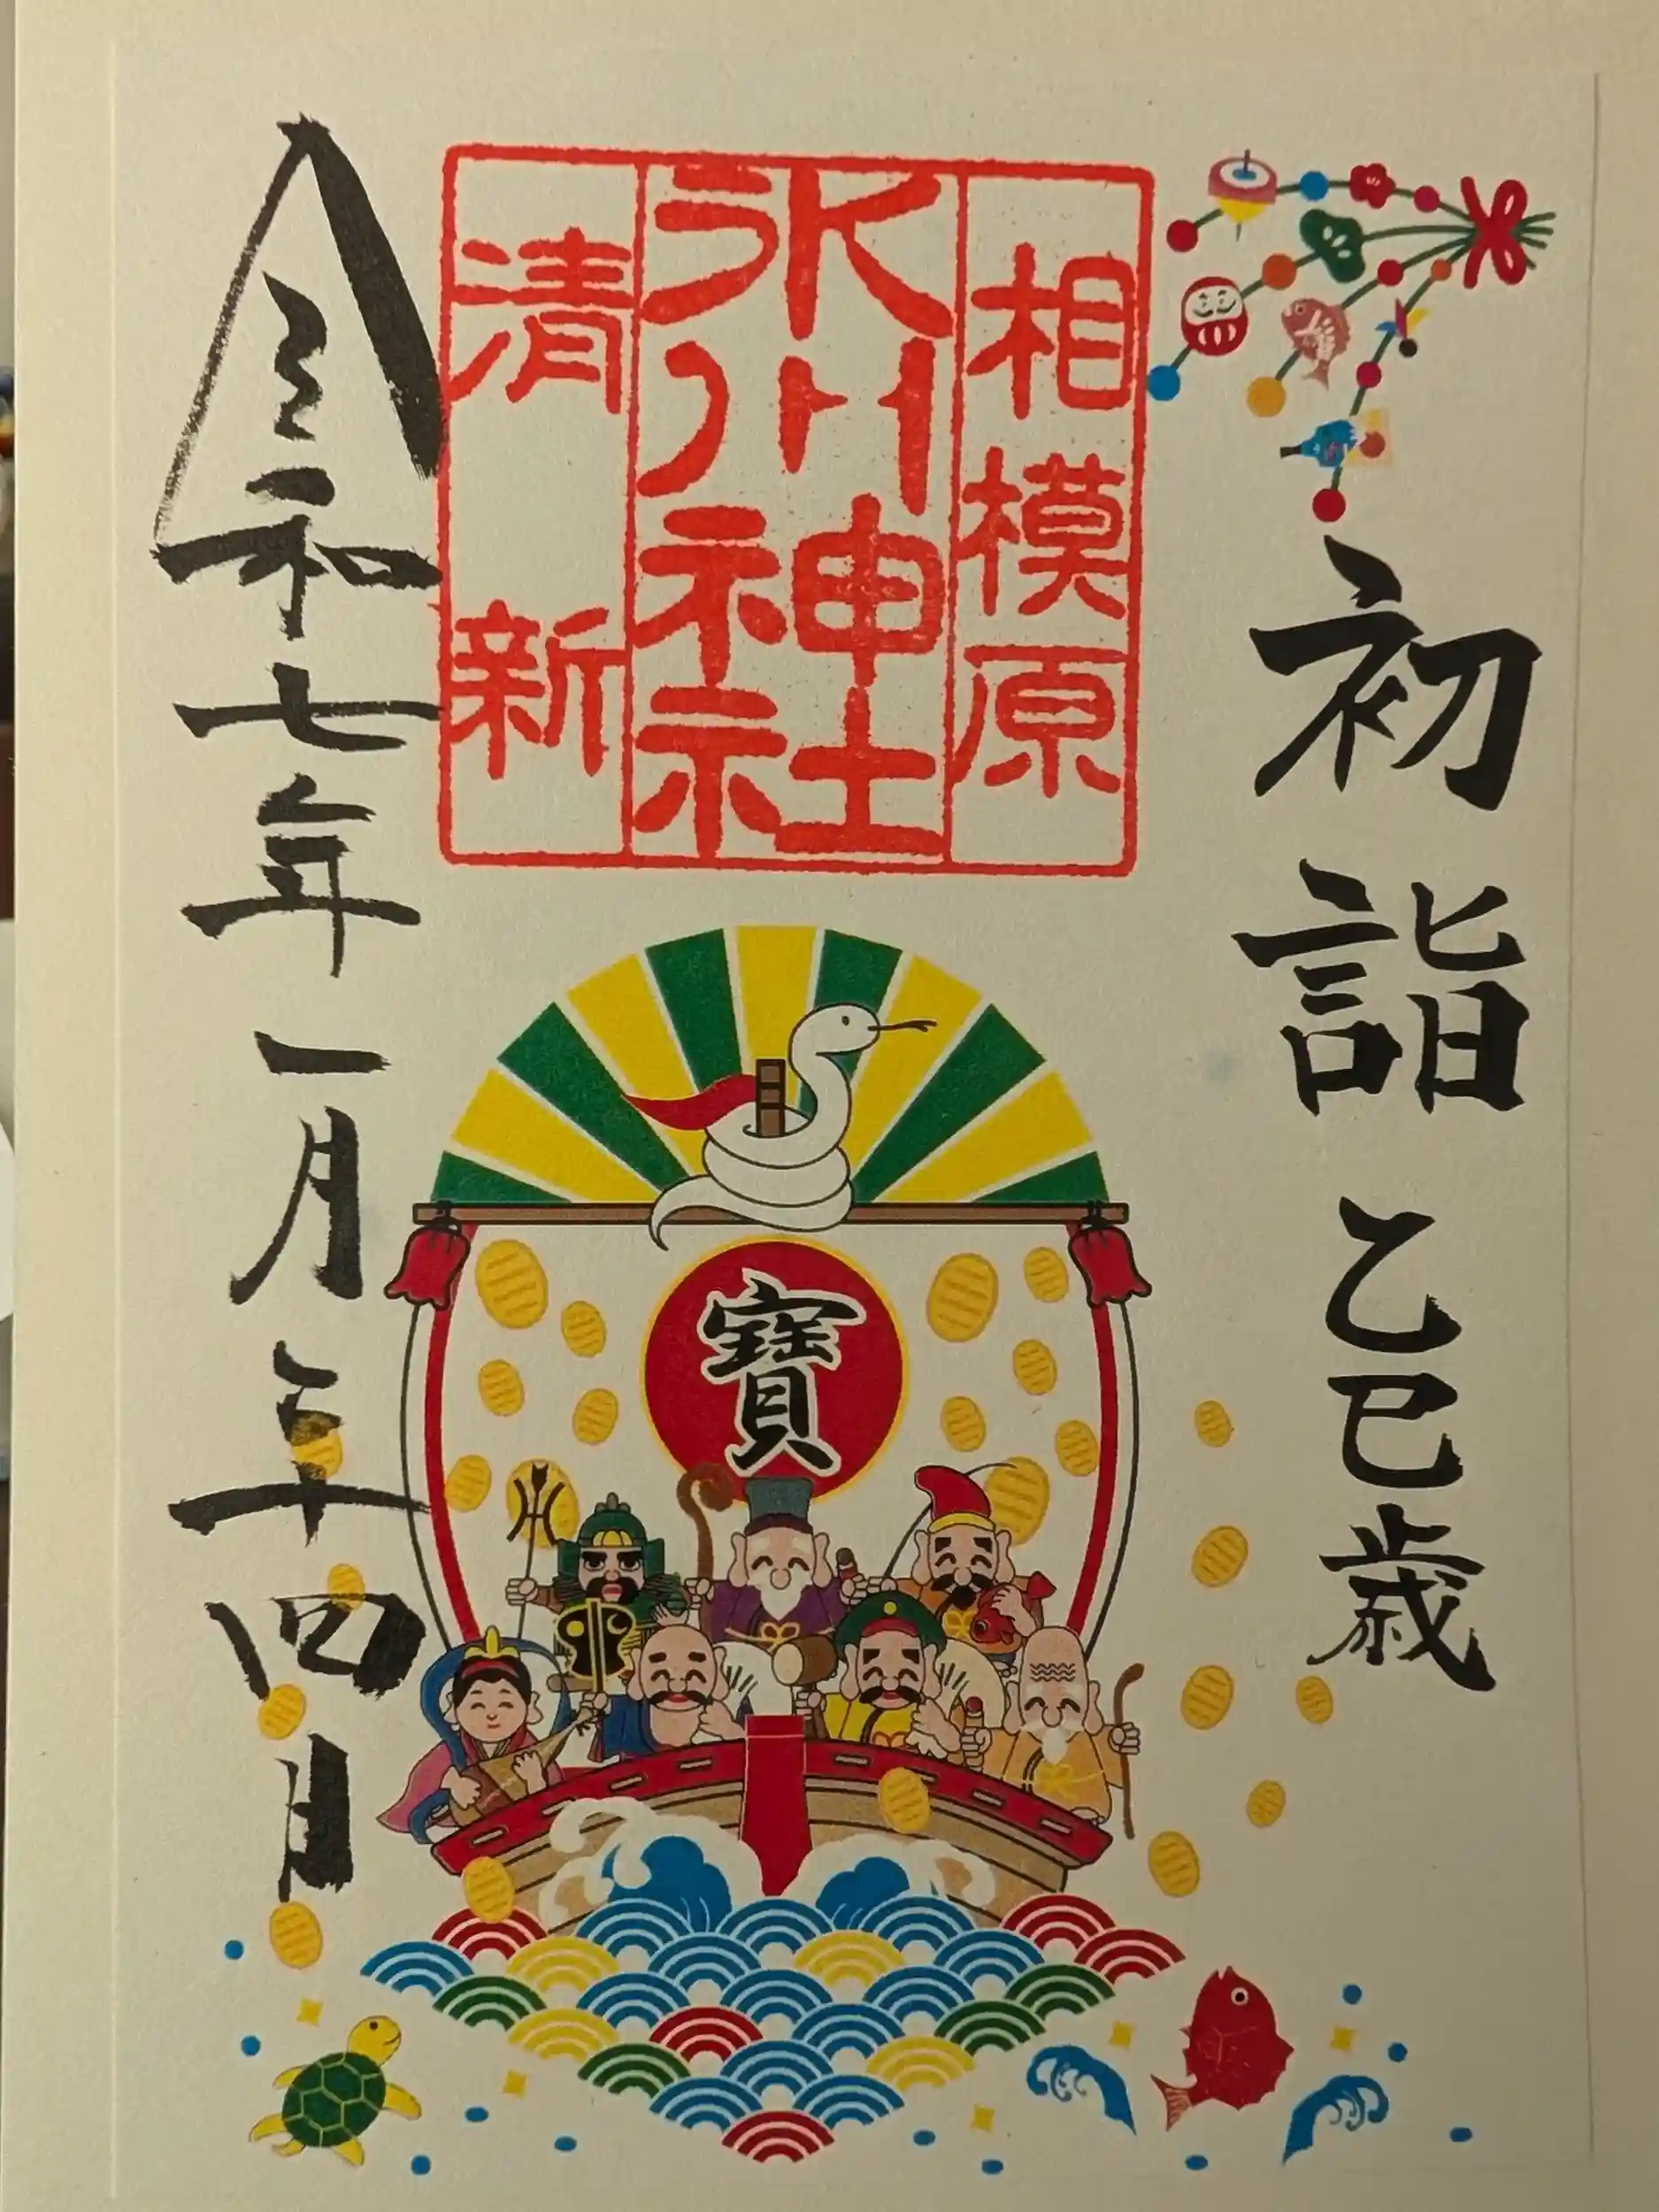 初詣 乙巳歳
相模原
氷川神社
清新
寶
令和七年一月二十四日